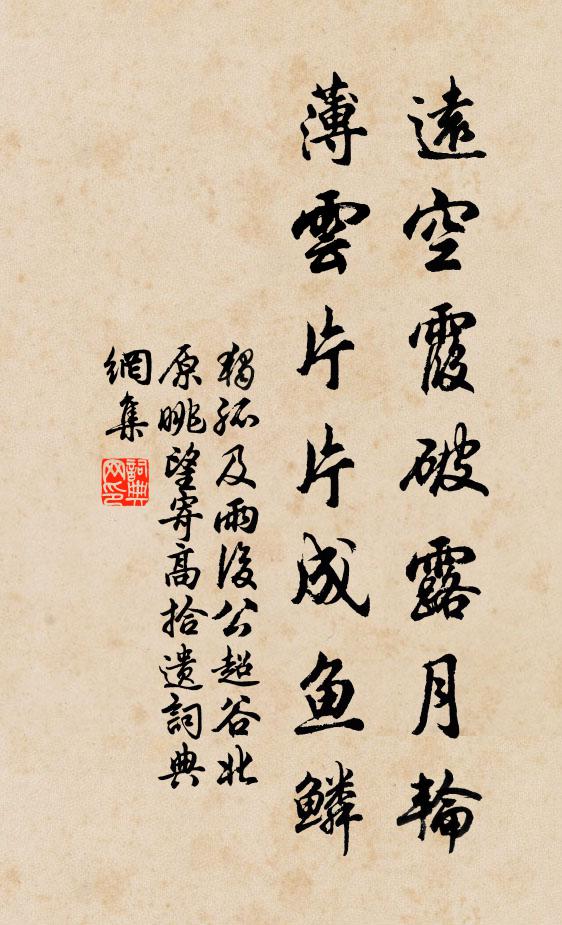 遠空霞破露月輪
薄雲片片成鱼鱗
獨孤及雨後公超谷北
原眺望寄高拾遺詞典
網集
詞典网印